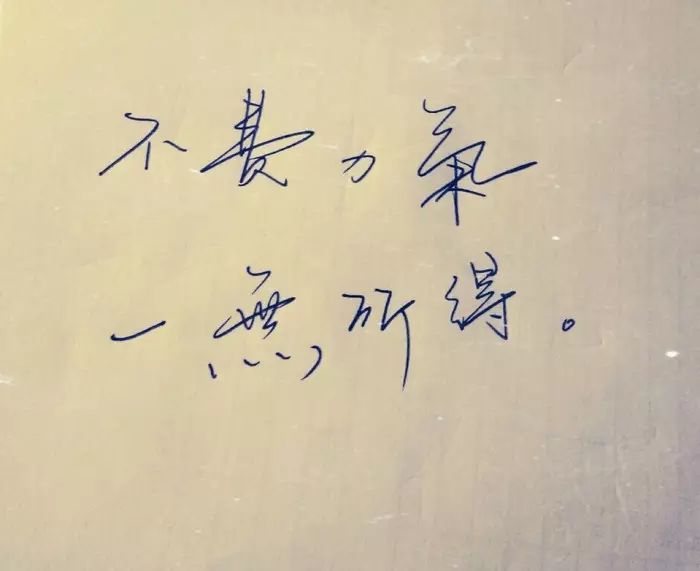 不費力氣
一無所得。